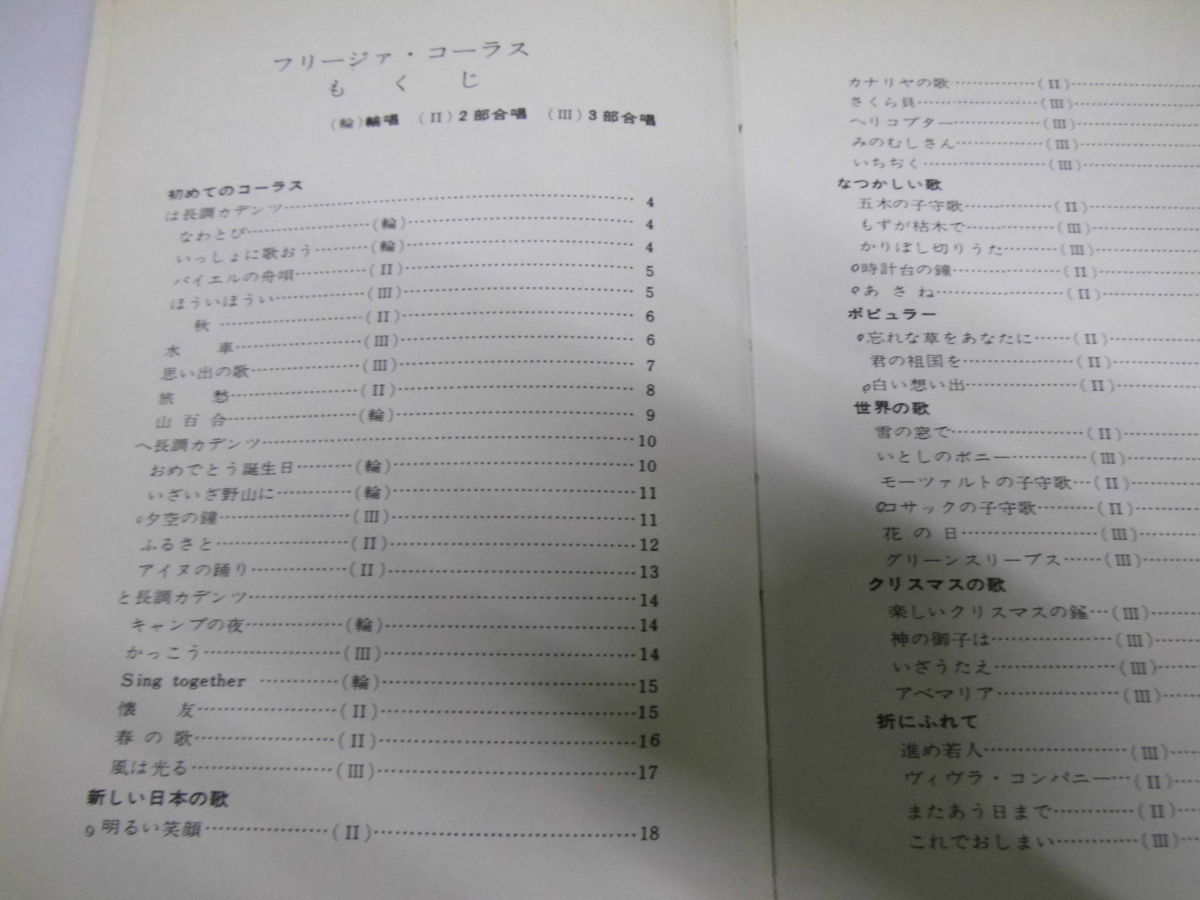 フリージァ・コーラス
もくじ
(輪)輪唱 (II)2部合唱 (III)3部合唱
初めてのコーラス
は長調カデンツ…………4
なわとび…………(輪)…………4
いっしょに歌おう…………(輪)…………4
バイエルの舟唄…………(II)…………5
ほういほうい…………(III)…………5
秋…………(II)…………6
水 車…………(III)…………6
思い出の歌…………(III)…………7
旅 愁…………(II)…………8
山百合…………(輪)…………9
へ長調カデンツ…………10
おめでとう誕生日…………(輪)…………10
いざいざ野山に…………(輪)…………11
○夕空の鐘…………(III)…………11
ふるさと…………(II)…………12
アイヌの踊り…………(II)…………13
と長調カデンツ…………14
キャンプの夜…………(輪)…………14
かっこう…………(III)…………14
Sing together…………(輪)…………15
懐 友…………(II)…………15
春の歌…………(II)…………16
風は光る…………(III)…………17
新しい日本の歌
○明るい笑顔…………(II)…………18
カナリヤの歌…………(II)…………
さくら貝…………(III)…………
ヘリコプター…………(III)…………
みのむしさん…………(III)…………
いちぢく…………(III)…………
なつかしい歌
五木の子守歌…………(II)…………
もずが枯木で…………(III)…………
かりぼし切りうた…………(III)…………
○時計台の鐘…………(II)…………
○あさね…………(II)…………
ポピュラー
○忘れな草をあなたに……(II)…………
君の祖国を…………(II)…………
○白い想い出…………(II)…………
世界の歌
雪の窓で…………(II)…………
いとしのボニー…………(III)…………
モーツァルトの子守歌…(II)…………
○コサックの子守歌………(II)…………
花の日…………(III)…………
グリーンスリーブス……(III)…………
クリスマスの歌
楽しいクリスマスの鐘…(III)…………
神の御子は…………(III)…………
いざうたえ…………(III)…………
アベマリア…………(III)…………
折にふれて
進め若人…………(III)…………
ヴィヴラ・コンパニー…(II)…………
またあう日まで…………(II)…………
これでおしまい…………(III)…………